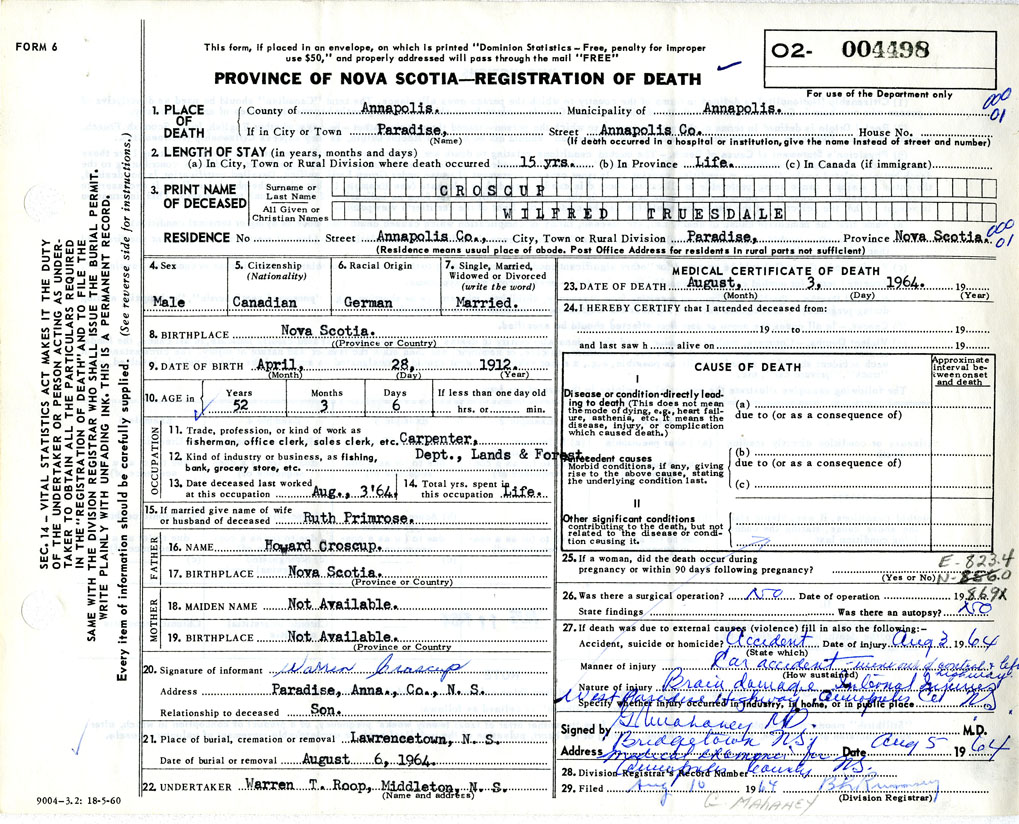 FORM 6
This form, if placed in an envelope, on which is printed "Dominion Statistics – Free, penalty for improper
use $50," and properly addressed will pass through the mail "FREE"
PROVINCE OF NOVA SCOTIA—REGISTRATION OF DEATH
O2- 004498
For use of the Department only
000
01
1. PLACE OF DEATH
County of Annapolis. Municipality of Annapolis.
If in City or Town Paradise, Street Annapolis Co. House No.
(Name) (If death occurred in a hospital or institution, give the name instead of street and number)
2. LENGTH OF STAY (in years, months and days)
(a) In City, Town or Rural Division where death occurred 15 yrs. (b) In Province Life. (c) In Canada (if immigrant)
3. PRINT NAME OF DECEASED
Surname or Last Name CROSCUP
All Given or Christian Names WILFRED TRUESDALE
RESIDENCE No Street Annapolis Co., City, Town or Rural Division Paradise, Province Nova Scotia.
000
01
(Residence means usual place of abode. Post Office Address for residents in rural parts not sufficient)
4. Sex
Male
5. Citizenship (Nationality)
Canadian
6. Racial Origin
German
7. Single, Married, Widowed or Divorced (write the word)
Married.
8. BIRTHPLACE Nova Scotia.
(Province or Country)
9. DATE OF BIRTH April, 28, 1912.
(Month) (Day) (Year)
10. AGE in Years Months Days If less than one day old
52 3 6 hrs. or min.
OCCUPATION
11. Trade, profession, or kind of work as
fisherman, office clerk, sales clerk, etc. Carpenter,
12. Kind of industry or business, as fishing, Dept., Lands & Forest
bank, grocery store, etc.
13. Date deceased last worked at this occupation Aug., 3'64
14. Total yrs. spent in this occupation Life.
15. If married give name of wife
or husband of deceased Ruth Primrose.
FATHER
16. NAME Howard Croscup.
17. BIRTHPLACE Nova Scotia.
(Province or Country)
MOTHER
18. MAIDEN NAME Not Available.
19. BIRTHPLACE Not Available.
(Province or Country)
20. Signature of informant Warren Croscup
Address Paradise, Anna., Co., N. S.
Relationship to deceased Son.
21. Place of burial, cremation or removal Lawrencetown, N. S.
Date of burial or removal August 6, 1964.
22. UNDERTAKER Warren T. Roop, Middleton, N. S.
(Name and address)
MEDICAL CERTIFICATE OF DEATH
23. DATE OF DEATH August, 3, 1964. 19
(Month) (Day) (Year)
24. I HEREBY CERTIFY that I attended deceased from:
19 to 19
and last saw h alive on 19
CAUSE OF DEATH
Approximate interval between onset and death
I
Disease or condition directly leading to death (This does not mean the mode of dying, e.g., heart failure, asthenia, etc. It means the disease, injury, or complication which caused death.)
(a)
due to (or as a consequence of)
Antecedent causes
Morbid conditions, if any, giving rise to the above cause, stating the underlying condition last.
(b)
due to (or as a consequence of)
(c)
II
Other significant conditions
contributing to the death, but not related to the disease or condition causing it.
25. If a woman, did the death occur during
pregnancy or within 90 days following pregnancy?
(Yes or No)
E-823.4
N-856.0
869X
26. Was there a surgical operation? NO Date of operation 19
State findings Was there an autopsy? NO
27. If death was due to external causes (violence) fill in also the following:–
Accident, suicide or homicide? Accident Date of injury Aug 3 1964
(State which)
Manner of injury Car accident - went out of control & left highway
(How sustained)
Nature of injury Brain damage Internal injuries
Specify whether injury occurred in industry, in home, or in public place
West Paradise Highway, Annapolis Co NS
Signed by G Mahaney MD. M.D.
Address Bridgetown NS Date Aug 5 1964
medical examiner for
Annapolis County NS.
28. Division Registrar's Record Number
29. Filed Aug 10 1964
(Division Registrar)
G MAHANEY
9004–3.2: 18-5-60
SEC. 14 – VITAL STATISTICS ACT MAKES IT THE DUTY
OF THE UNDERTAKER OR PERSON ACTING AS UNDERTAKER
TO OBTAIN ALL THE PARTICULARS REQUIRED
IN THE "REGISTRATION OF DEATH" AND TO FILE THE
SAME WITH THE DIVISION REGISTRAR WHO SHALL ISSUE THE BURIAL PERMIT.
WRITE PLAINLY WITH UNFADING INK. THIS IS A PERMANENT RECORD.
Every item of information should be carefully supplied. (See reverse side for instructions.)